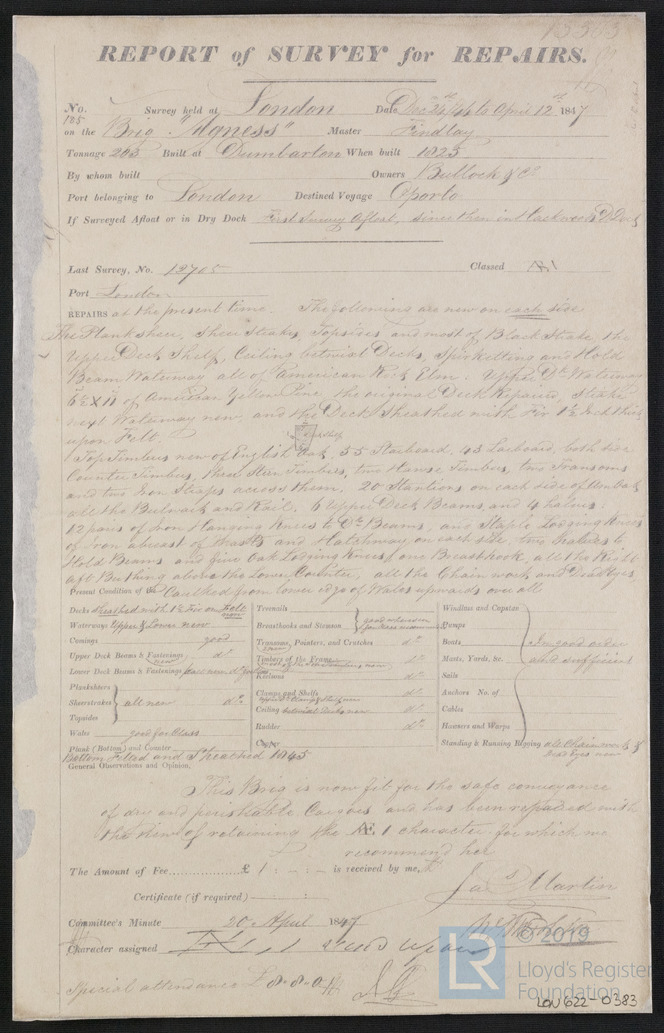 REPORT of SURVEY for REPAIRS.
No. 185 Survey held at London Date Dec 24/46 to April 12th 1847
on the Brig "Agness" Master Findlay
Tonnage 203 Built at Dumbarton When built 1825
By whom built Owners Bullock & Co
Port belonging to London Destined Voyage Oporto
If Surveyed Afloat or in Dry Dock First Survey Afloat, since then in D Dock
Last Survey, No. 12705 Classed Æ1
Port London
REPAIRS at the present time. The following are new on each side
The Plank sheer, Sheer Strakes, Topsides and most of Black Strake, the
Upper Deck Shelf, Ceiling betwixt Decks, Spirketting and Hold
Beam Waterway all of American Rock Elm. Upper Dk Waterway
of American Yellow Pine, the original Deck Repaired, Strake
next Waterway new, and the Deck Sheathed with Fir 1½ Inch thick
upon Felt.
Top Timbers new of English Oak, 35 Starboard, 43 Larboard, both side
Counter Timbers, three Stern Timbers, two Hause Timbers, two Transoms
and two Iron Straps across them. 20 Stantions on each side of
all the Bulwark and Rail. 6 Upper Deck Beams, and 4 halves.
12 pairs of Iron Hanging Knees to Dk Beams, and Staple Lodging Knees
of Iron abreast of Masts and Hatchway, on each side, two halves to
Hold Beams and five Oak Lodging Knees, one Breasthook, all the
aft Birthing above the Lower Counter, all the Chain work and Dead Eyes
Present Condition of the Caulked from lower edge of Wales upwards over all
Decks sheathed with 1½ Fir on Felt new
Waterways Upper & Lower new
Comings good
Upper Deck Beams & Fastenings new do
Lower Deck Beams & Fastenings
Plankshears
Sheerstrakes } all new do
Topsides
Wales good for Class
Plank (Bottom) and Counter
Bottom Felted and Sheathed 1845
Treenails
Breasthooks and Stemson } good where seen
Transoms, Pointers, and Crutches do
Timbers of the Frame do
Keelsons do
Clamps and Shelfs do
Ceiling betwixt Decks new do
Rudder do
Copper
Windlass and Capstan
Pumps
Boats In good order
Masts, Yards, &c. and sufficient
Sails
Anchors No. of
Cables
Hawsers and Warps
Standing & Running Rigging all Chain work & Dead Eyes new
General Observations and Opinion,
This Brig is now fit for the safe conveyance
of dry and perishable Cargoes and has been repaired with
the view of retaining the Æ 1 character for which we
recommend her
The Amount of Fee £ 1 : - : - is received by me,
Jas Martin
Certificate (if required)
Committee's Minute 20 April 1847
Character assigned
Special attendance £8-8-0
© 2019
LR
Lloyd's Register
Foundation
LON 622-0383